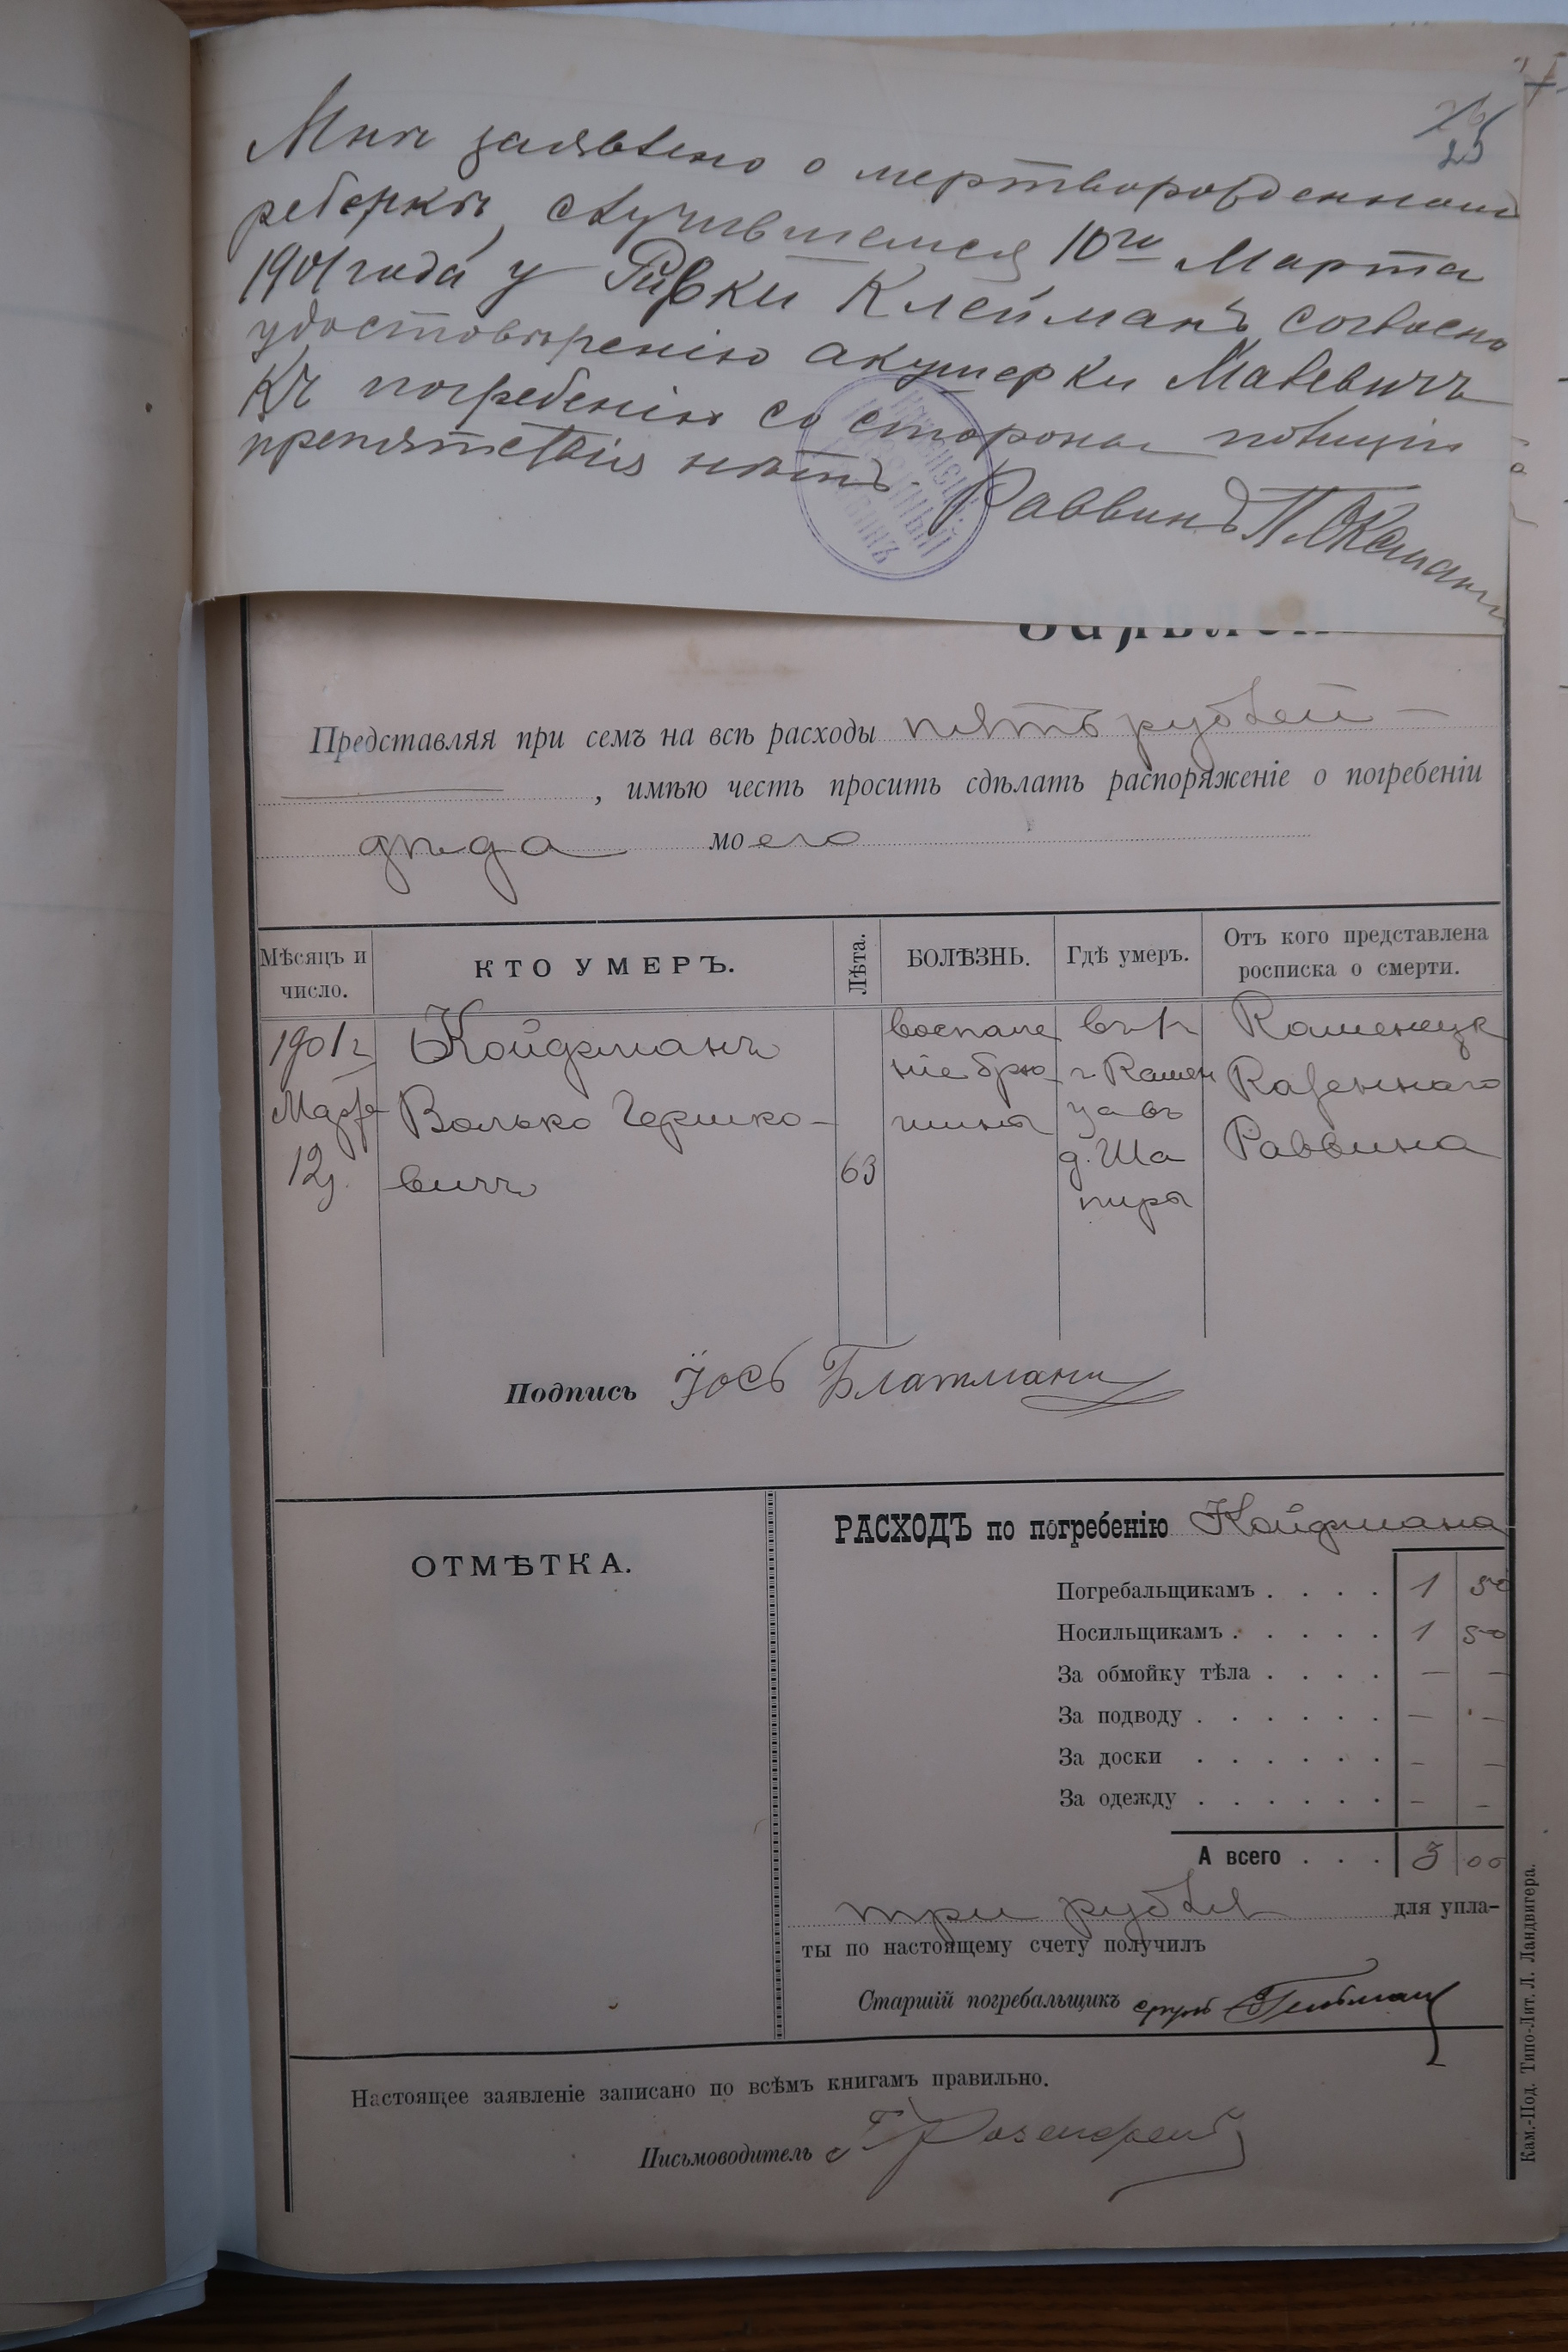 25
Мнѣ заявлено о мертворожденномъ
ребенкѣ, случившемся 10го Марта
1901 года у Ривки Клейманъ согласно
удостовѣренію акушерки Малевичъ
Къ погребенію со стороны полиціи
препятствія нѣтъ. Раввинъ
КАМЕНЕЦКІЙ
РАВВИНЪ
Представляя при семъ на всѣ расходы пять рублей —
, имѣю честь просить сдѣлать распоряженіе о погребеніи
дѣда моего
Мѣсяцъ и число.
КТО УМЕРЪ.
Лѣта.
БОЛѢЗНЬ.
Гдѣ умеръ.
Отъ кого представлена росписка о смерти.
1901 г
Марта
12 д.
Койфманъ
Волько Гершко-
вичъ
63
воспале
ніе брю
шины
въ
г. Камен
ца въ
д. Ша
пиры
Каменецк
Казеннаго
Раввина
Подпись Іось Блатманъ
ОТМѢТКА.
РАСХОДЪ по погребенію Койфмана
Погребальщикамъ . . . . 1 50
Носильщикамъ . . . . . 1 50
За обмойку тѣла . . . . — —
За подводу . . . . . . — —
За доски . . . . . . — —
За одежду . . . . . . — —
А всего . . . 3 00
три рубля для упла-
ты по настоящему счету получилъ
Старшій погребальщикъ
Настоящее заявленіе записано по всѣмъ книгамъ правильно.
Письмоводитель
Кам.-Под. Типо-Лит. Л. Ландвигера.